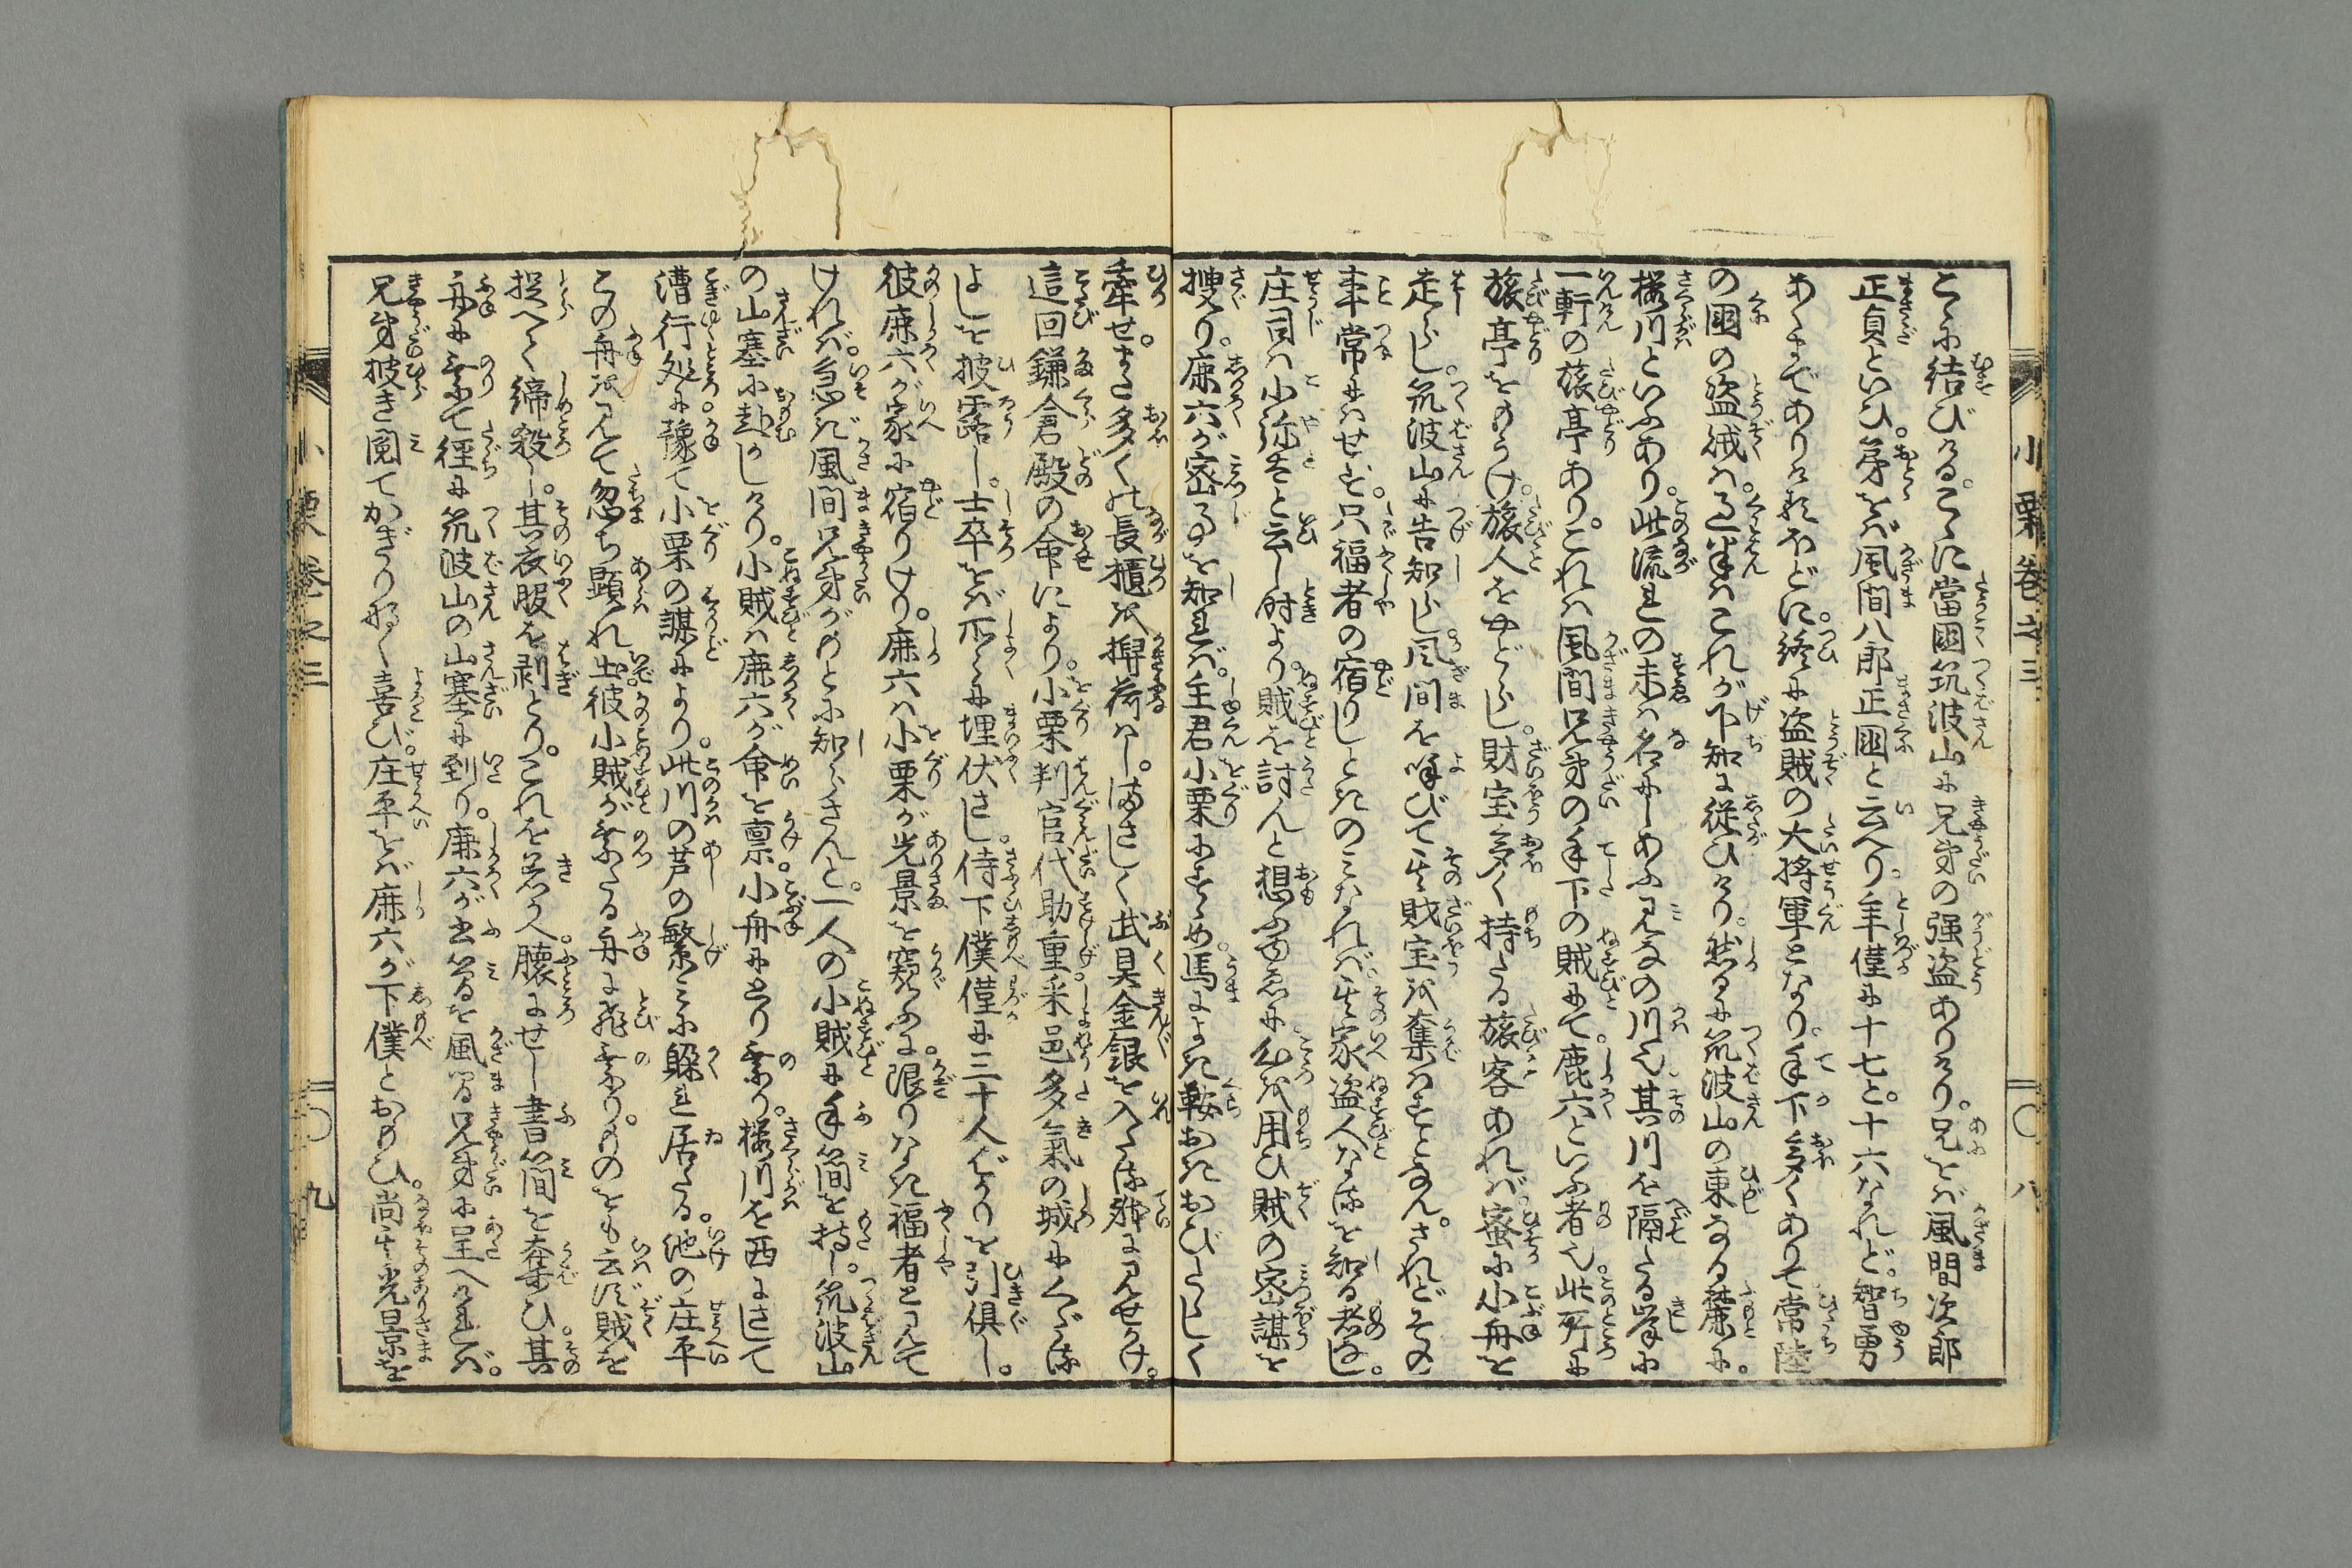 こゝに結びける。こゝに當國筑波山に兄弟の强盗ありけり。兄をば風間次郎
正貞といひ。弟をば風間八郎正國と云へり。年僅に十七と。十六なれど。智勇
あくまでありけるほどに。終に盗賊の大將軍となり。手下多くありて常陸
の國の盗賊は。過半はこれが下知に従ひけり。然るに筑波山の東なる麓に。
桜川といふあり。此流れの末は名にしあふみなの川也。其川を隔たる岸に
一軒の旅亭あり。これは風間兄弟の手下の賊にて。鹿六といふ者也。此所に
旅亭をまうけ。旅人をやどらし。財宝多く持たる旅客あれば。蜜に小舟を
走らし。筑波山に告知らし。風間を呼びて其財宝を奪はすとなん。されどその
事常にはせず。只福者の宿りしときのみなれば。其家盗人なるを知る者なし。
庄司は小弥太と云し时より。賊を討んと想ふゆゑに。心を用ひ賊の密謀を
搜り。鹿六が密事を知れば。主君小栗にすゝめ。馬によき鞍おきおびたゝしく
牽せ。また多くの長櫃を舁荷はし。はなはなしく武具金銀を入たる躰に見せかけ。
這回鎌倉殿の命により。小栗判官代助重采邑多氣の城にくだる
よしを披露し。士卒をば所々に埋伏さし。侍下僕僅に三十人ばかりを引倶し。
彼鹿六が家に宿りけり。鹿六は小栗が光景を窺ふに。限りなき福者と見て
ければ。急ぎ風間兄弟がもとに知らさんと。一人の小賊に手簡を持し。筑波山
の山塞に赴かしけり。小賊は鹿六が命を禀。小舟にとり乗り。桜川を西にさして
漕行処に。豫て小栗の謀により。此川の芦の繁みに躱れ居たる。池の庄平
この舟を見て忽ち顕れ出。彼小賊が乗たる舟に飛乗り。ものをも云はず賊を
捉へて締殺し。其衣服を剥とり。これを著かへ。懐にせし書簡を奪ひ。其
舟に乗て徑に筑波山の山塞に到り。鹿六が書簡を風間兄弟に呈へければ。
兄弟披き閲てかぎりなく喜び。庄平をば鹿六が下僕とおもひ。尚其光景を
小栗卷之三
〇八
小栗卷之三
〇九